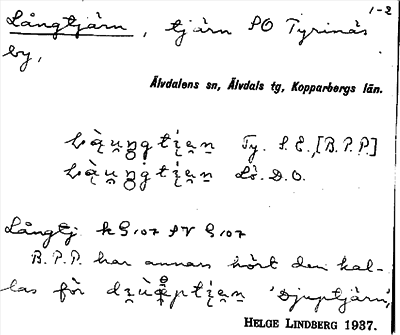 1-2
Långtjärn, tjärn SO Tyrinäs
by,
Älvdalens sn, Älvdals tg, Kopparbergs län.
Ty. S.E. [B.P.P]
Lö. D.O.
Långtj. kS,07 SV S,07
B.P.P. har annars hört den kal-
las för 'Djuptjärn',
HELGE LINDBERG 1937.